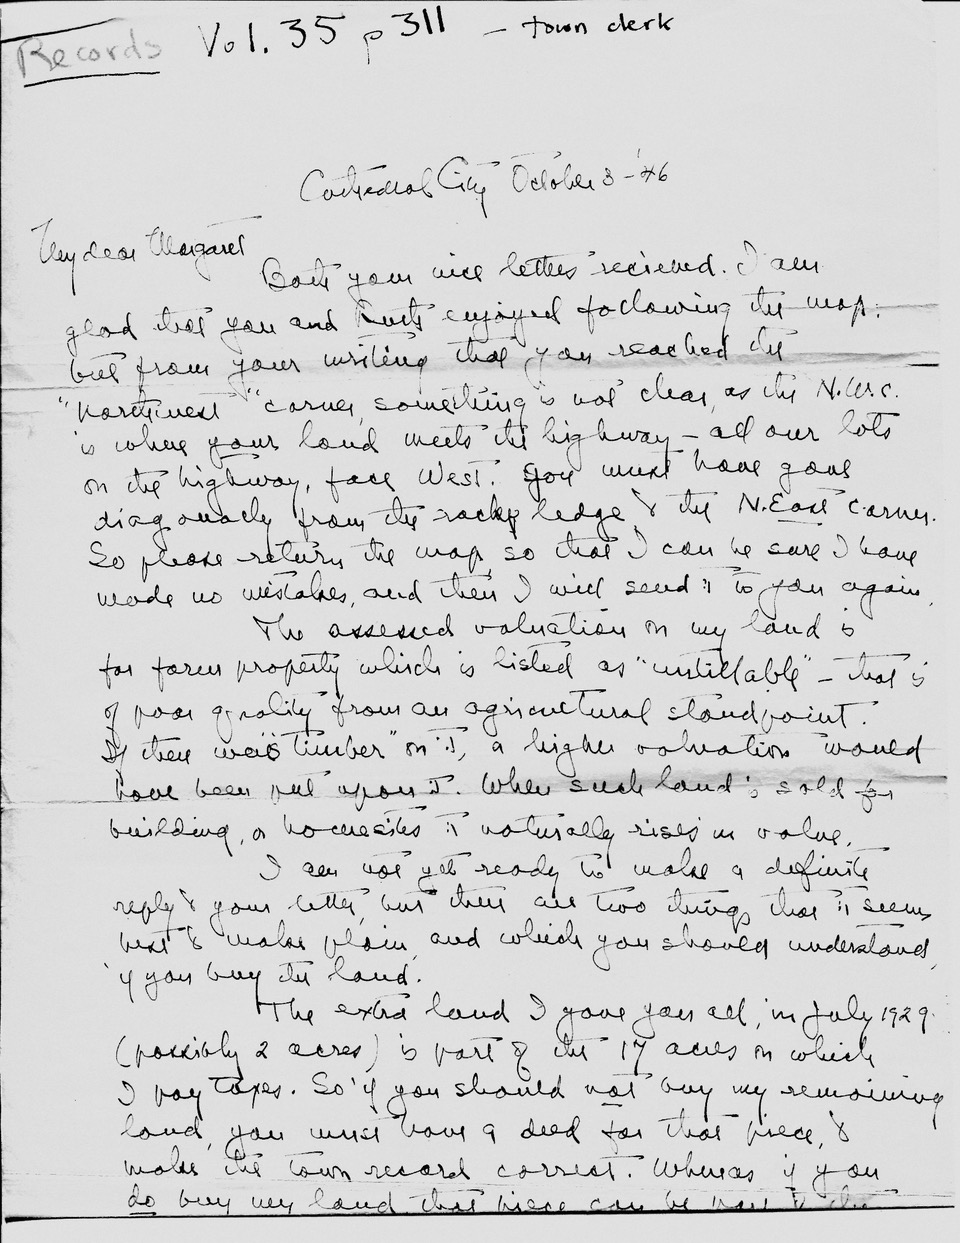 Records Vol. 35 p 311 – town clerk
Cathedral City October 3 – '46
My dear Margaret
Both your nice letters recieved. I am
glad that you and Ruth enjoyed following the map.
but from your writing that you reached the
"northwest" corner, something is not clear, as the N.W.C.
is where your land meets the highway – all our lots
on the highway, face West. You must have gone
diagonally from the rocky ledge, to the N.East corner.
So please return the map, so that I can be sure I have
made no mistakes, and then I will send it to you again.
The assessed valuation on my land is
for farm property which is listed as "untillable" – that is
of poor quality from an agricultural standpoint.
If there was "timber" on it, a higher valuation would
have been put upon it. When such land is sold for
building, or homesites it naturally rises in value.
I am not yet ready to make a definite
reply to your letter, but there are two things that it seems
best to make plain, and which you should understand,
if you buy the land.
The extra land I gave you all, in July 1929
(possibly 2 acres) is part of the 17 acres on which
I pay taxes. So if you should not buy my remaining
land, you must have a deed for that piece, to
make the town record correct. Whereas if you
do buy my land that piece can be